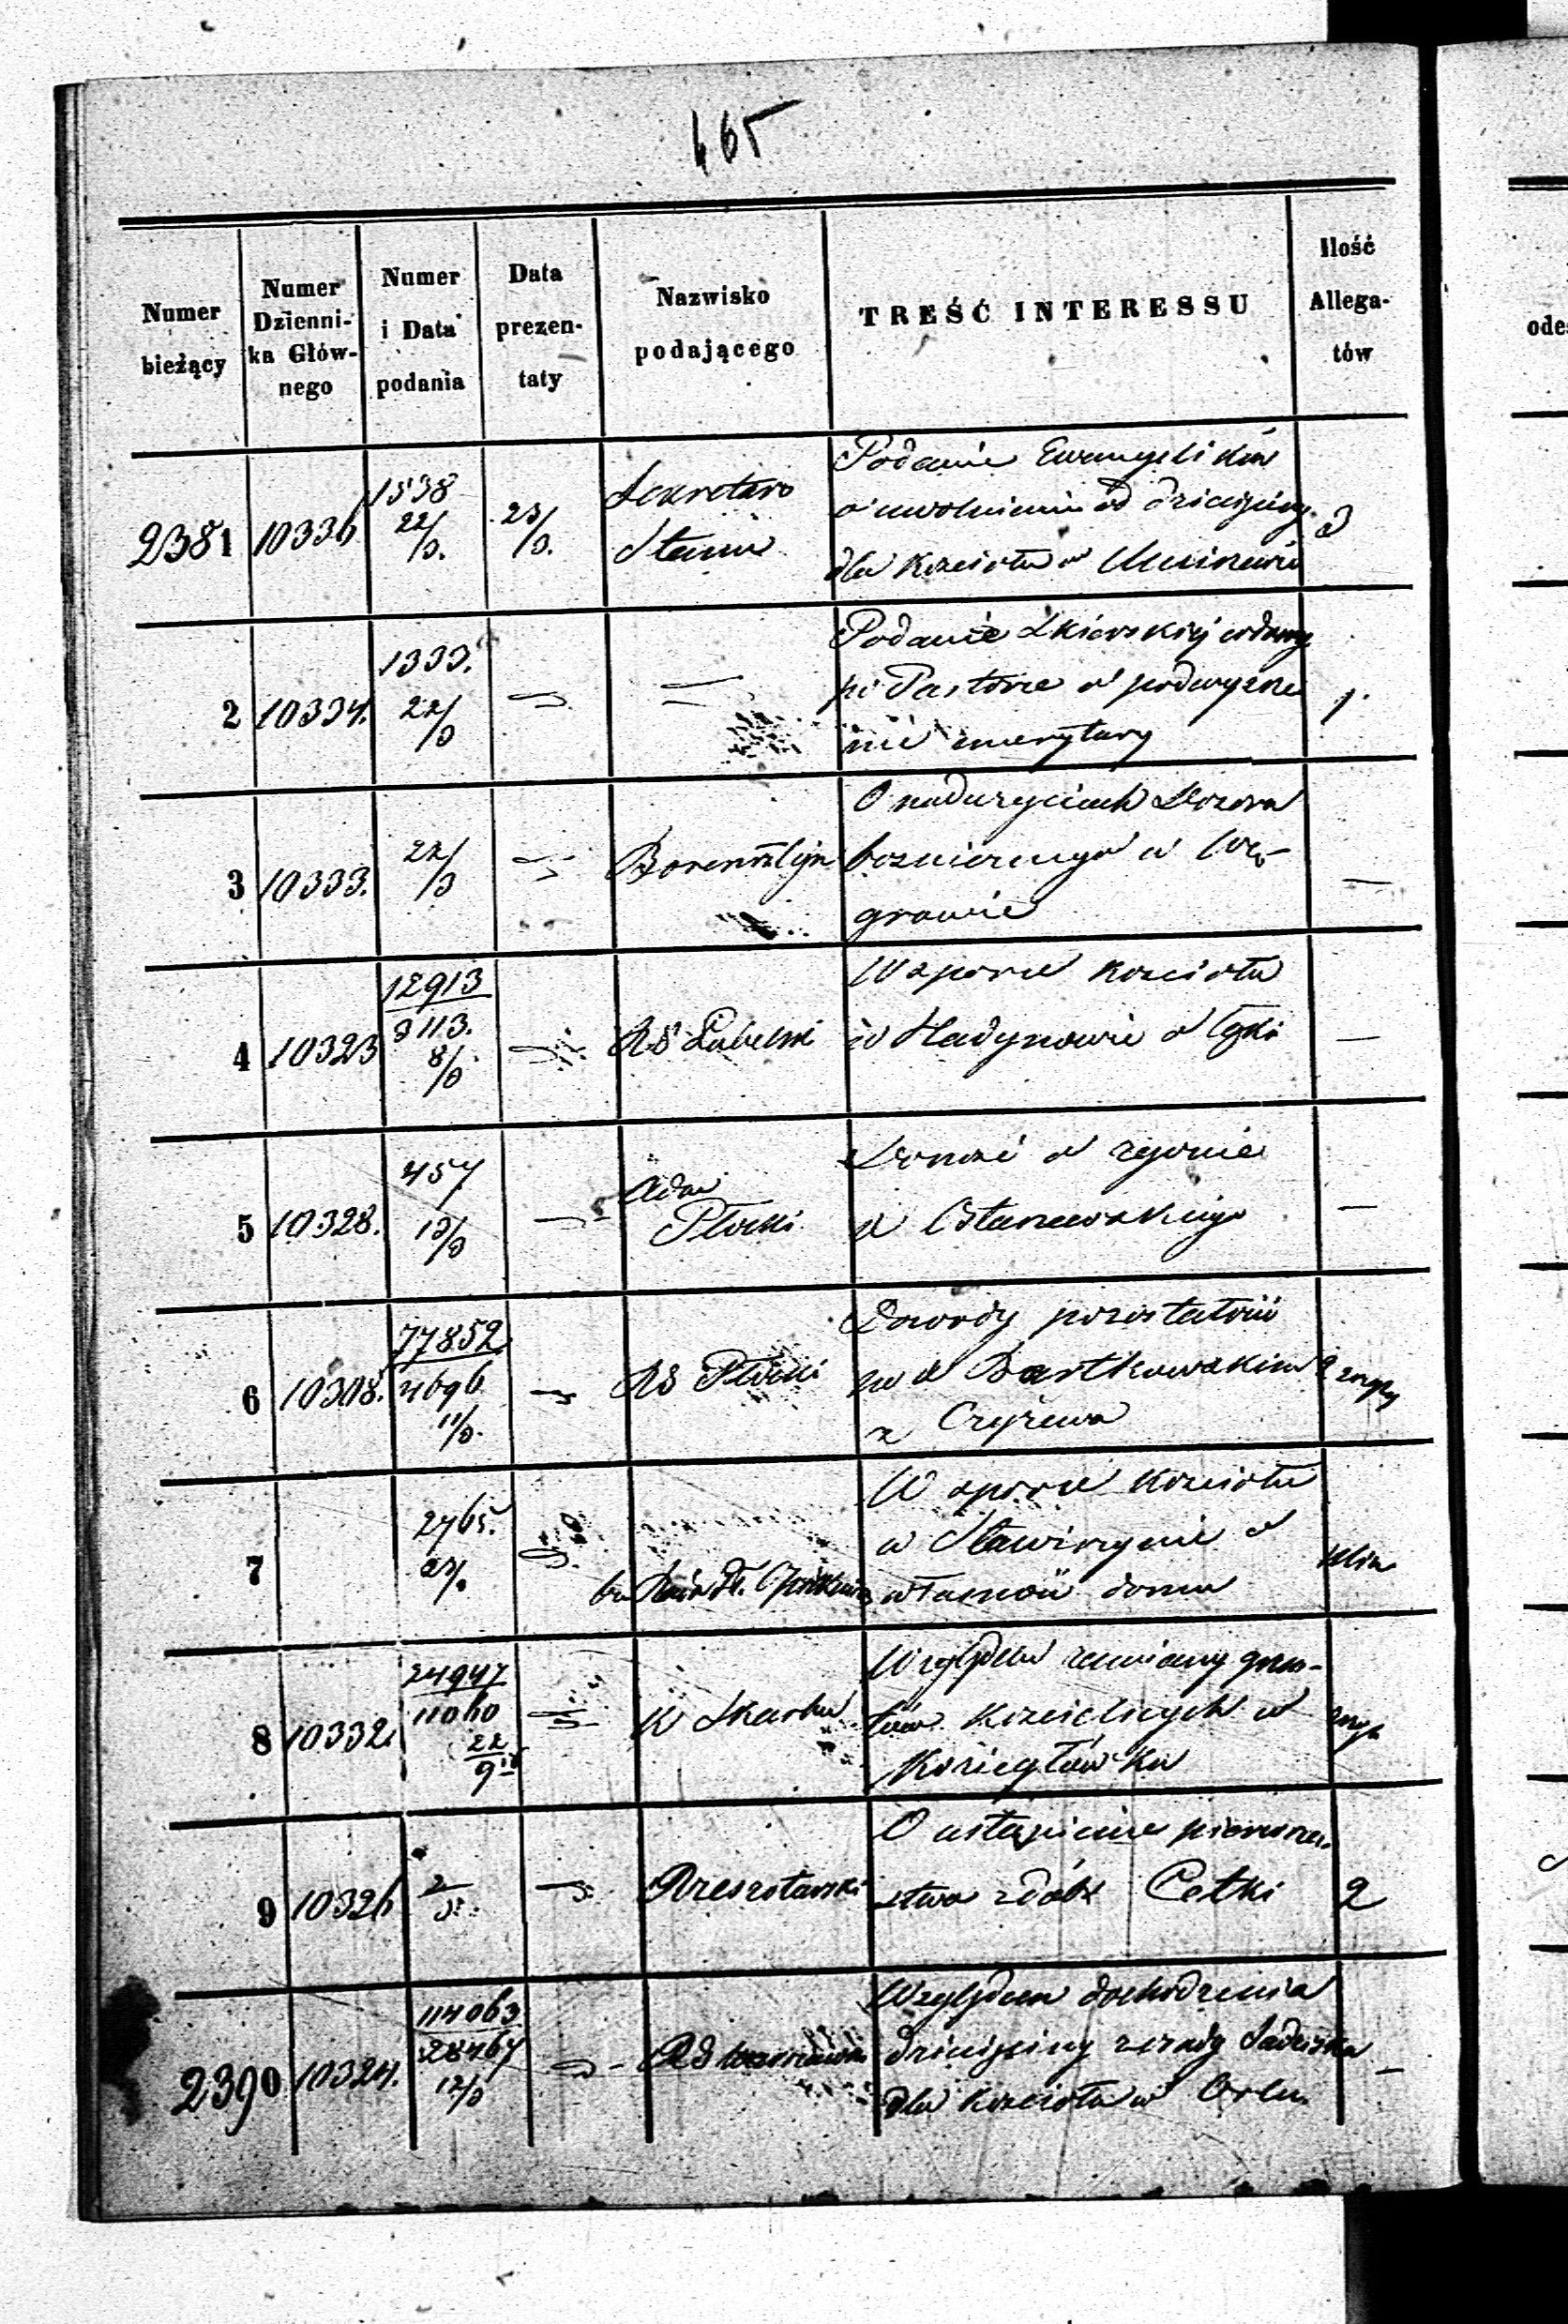 465
Numer bieżący
Numer Dzienni- ka Głów- nego
Numer i Data podania
Data prezen- taty
Nazwisko podającego
TREŚĆ INTERESSU
Ilość Allega- tów
ode
2381 10336 1538 22/9. 23/9. Sekretarz Stanu Podanie Ewangelików
o uwolnienie od dziesięciny
dla kościoła w 3
2 10334. 1333. 22/9 — — Podanie Skierskiej wdowy
po Pastorze o podwyższe
nie emerytury 1.
3 10333. 22/9 — O nadużyciach Dozoru
bożniczego w Wę-
growie —
4 10323 12913
9113. 8/9 — RG Lubelski W sporze kościoła
w Hadynowie o łąki —
5 10328. 457 13/9 — Płocki Donosi o zgonie
X —
6 10308. 77852
4696 11/9. — RG Płocki Dowody pozostałości
po X Bartkowskim
z Czyżewa 2
7 2765. W sporze kościoła
w Sławoszynie o
własność domu
8 10332. 24947
11060
22/9 K Skarbu Względem zamiany grun-
tów kościelnych w
Koziegłówku
9 10326 2/9 — Rzeszotarski O ustąpienie pierwszeń-
stwa z dóbr Cetki 2
2390 10324. 114063
28467 12/9 — RG Względem dochodzenia
dziesięciny z
dla kościoła w Orlu —